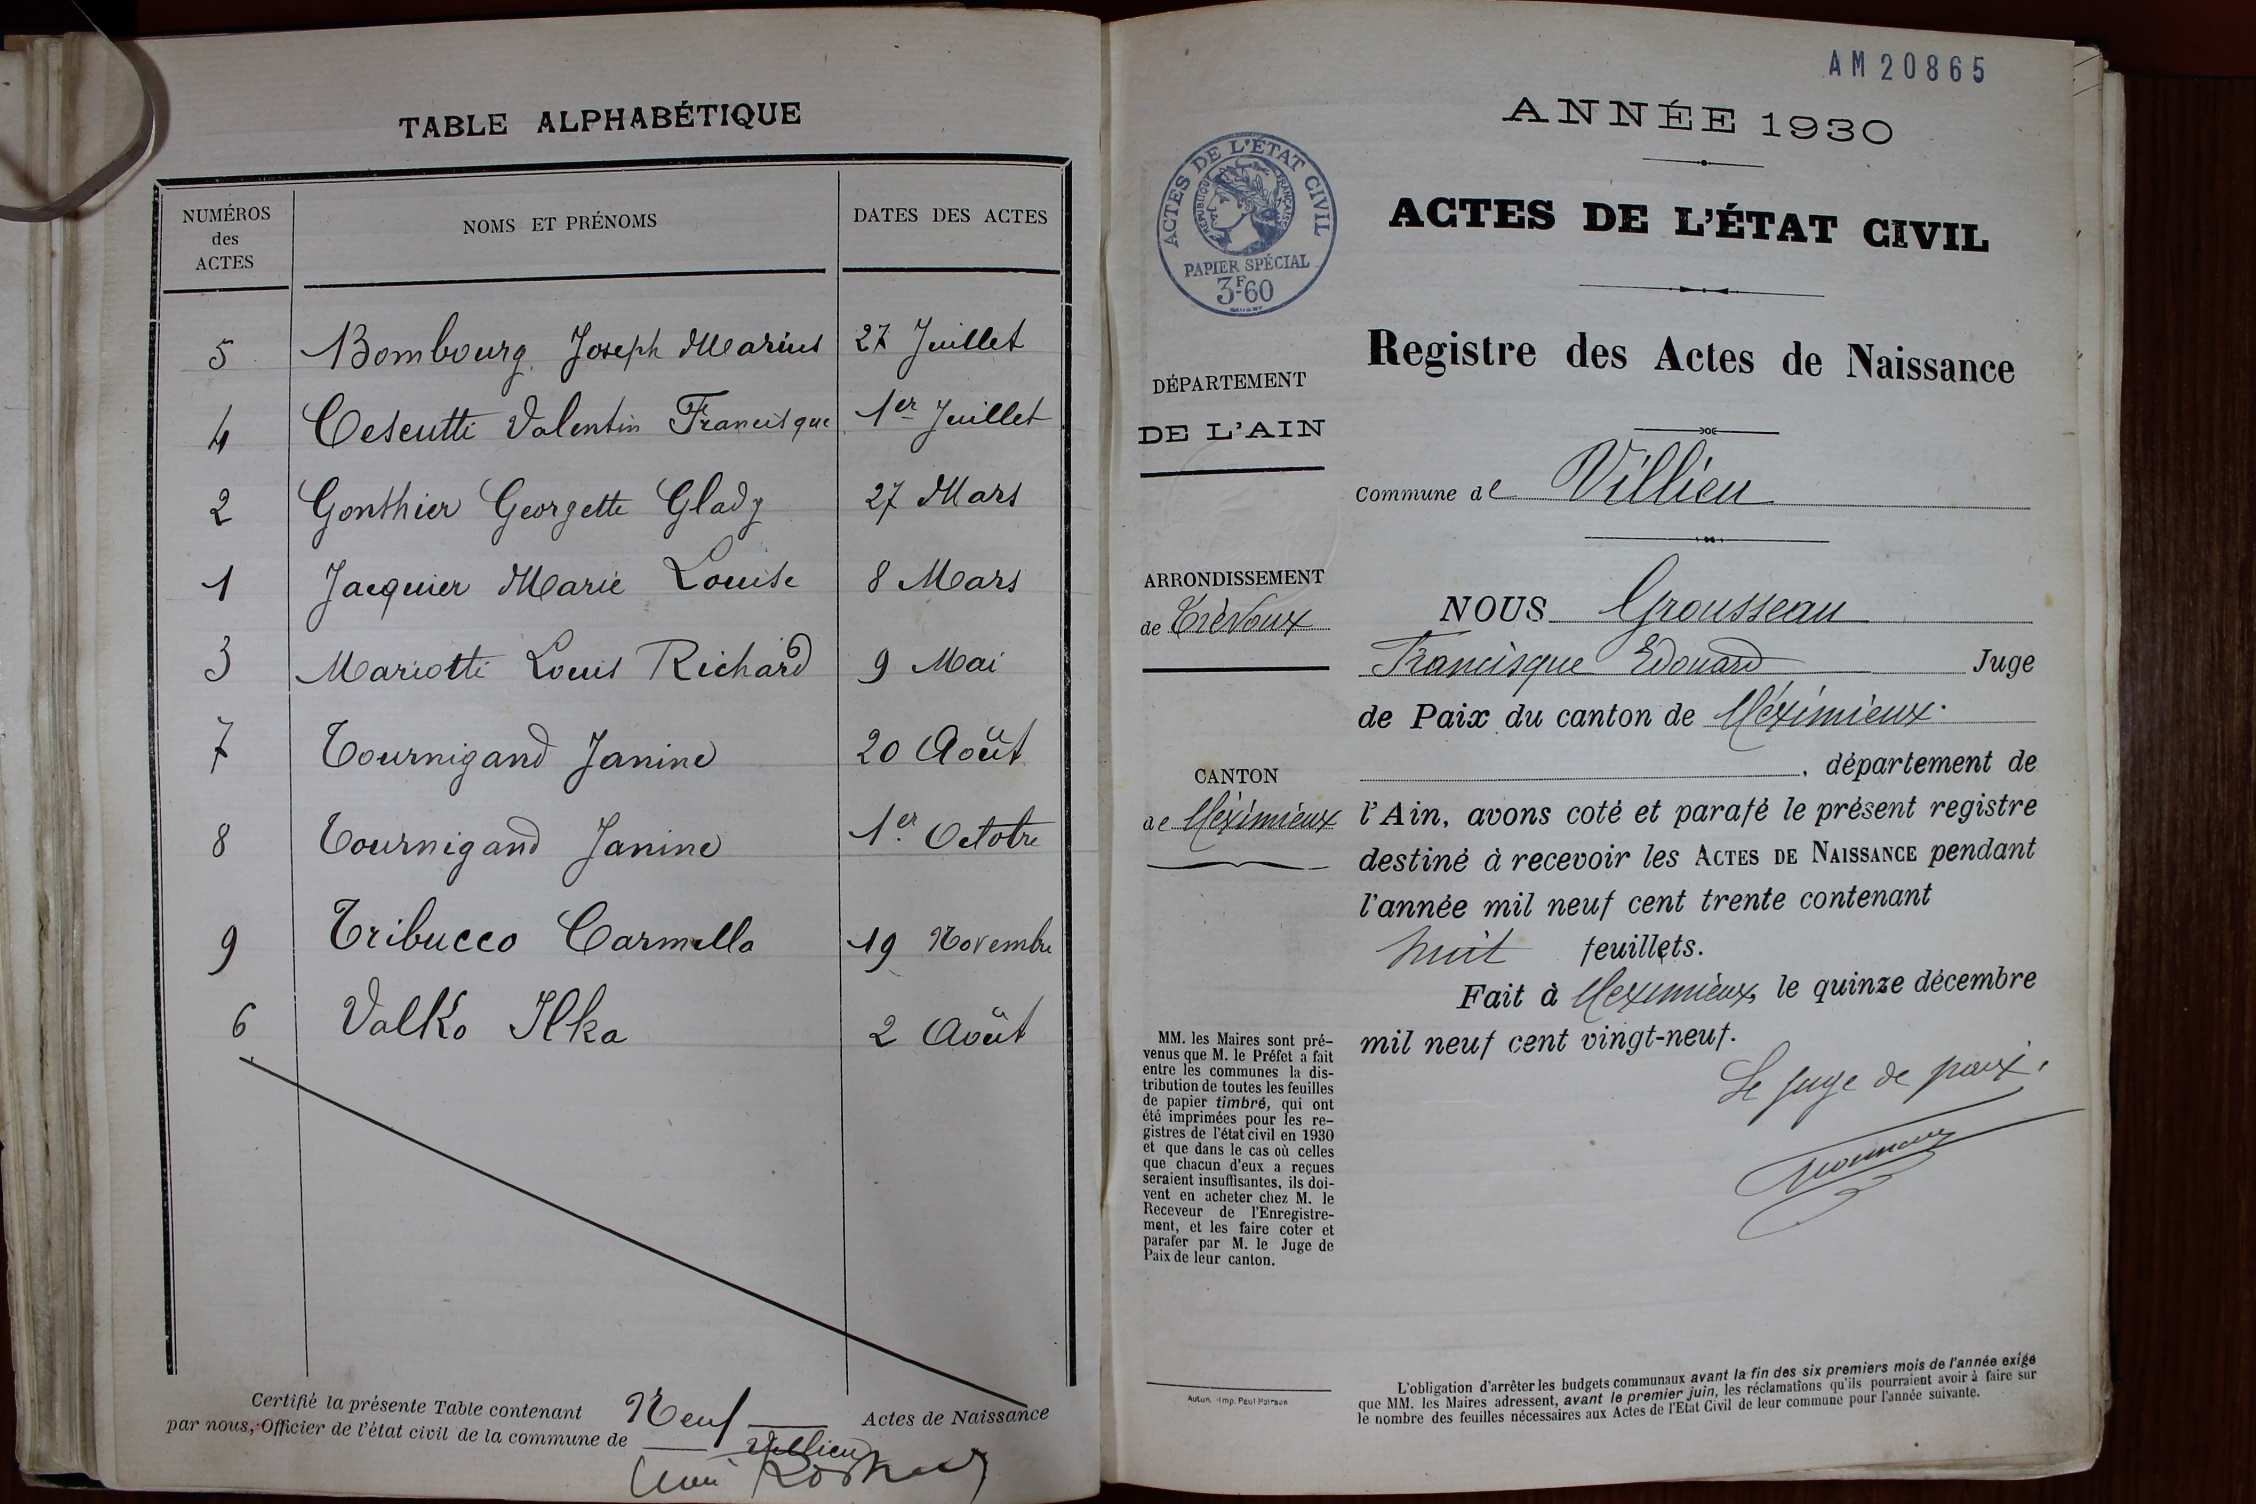 TABLE ALPHABÉTIQUE
NUMÉROS
des
ACTES
NOMS ET PRÉNOMS
DATES DES ACTES
5 Bombourg Joseph Marius 27 Juillet
4 Cescutti Valentin Francisque 1er Juillet
2 Gonthier Georgette Glady 27 Mars
1 Jacquier Marie Louise 8 Mars
3 Mariotti Louis Richard 9 Mai
7 Tournigand Janine 20 Août
8 Tournigand Janine 1er Octobre
9 Tribucco Carmella 19 Novembre
6 Valko Ilka 2 Août
Certifié la présente Table contenant Neuf Actes de Naissance
par nous, Officier de l'état civil de la commune de Villieu
AM20865
ANNÉE 1930
ACTES DE L'ÉTAT CIVIL
RÉPUBLIQUE FRANÇAISE
PAPIER SPÉCIAL
3F60
ACTES DE L'ÉTAT CIVIL
Registre des Actes de Naissance
DÉPARTEMENT
DE L'AIN
Commune de Villieu
ARRONDISSEMENT
de Trévoux
CANTON
de Méximieux
NOUS Grousseau
Francisque Edouard Juge
de Paix du canton de Méximieux.
, département de
l'Ain, avons coté et parafé le présent registre
destiné à recevoir les ACTES DE NAISSANCE pendant
l'année mil neuf cent trente contenant
huit feuillets.
Fait à Meximieux, le quinze décembre
mil neuf cent vingt-neuf.
Le juge de paix.
MM. les Maires sont pré-
venus que M. le Préfet a fait
entre les communes la dis-
tribution de toutes les feuilles
de papier timbré, qui ont
été imprimées pour les re-
gistres de l'état civil en 1930
et que dans le cas où celles
que chacun d'eux a reçues
seraient insuffisantes, ils doi-
vent en acheter chez M. le
Receveur de l'Enregistre-
ment, et les faire coter et
parafer par M. le Juge de
Paix de leur canton.
Autun. Imp. Paul
L'obligation d'arrêter les budgets communaux avant la fin des six premiers mois de l'année exige
que MM. les Maires adressent, avant le premier juin, les réclamations qu'ils pourraient avoir à faire sur
le nombre des feuilles nécessaires aux Actes de l'Etat Civil de leur commune pour l'année suivante.